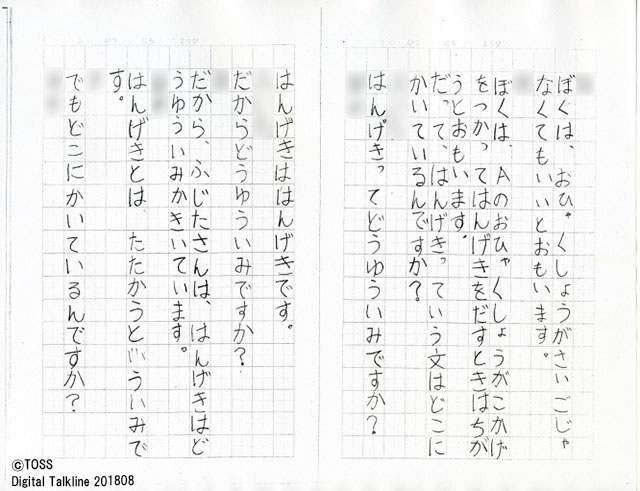 ぼくは、おひゃくしょうがさいごじゃ
なくてもいいとおもいます。
ぼくは、Aのおひゃくしょうがこかげ
をつかってはんげきをだすときはちが
うとおもいます。
だって、はんげきっていう文はどこに
かいているんですか?
はんげきってどうゆういみですか?
はんげきははんげきです。
だからどうゆういみですか?
だから、ふじたさんは、はんげきはど
うゆういみかきいています。
はんげきとは、たたかうといういみで
す。
でもどこにかいているんですか?
©TOSS
Digital Talkline 201808